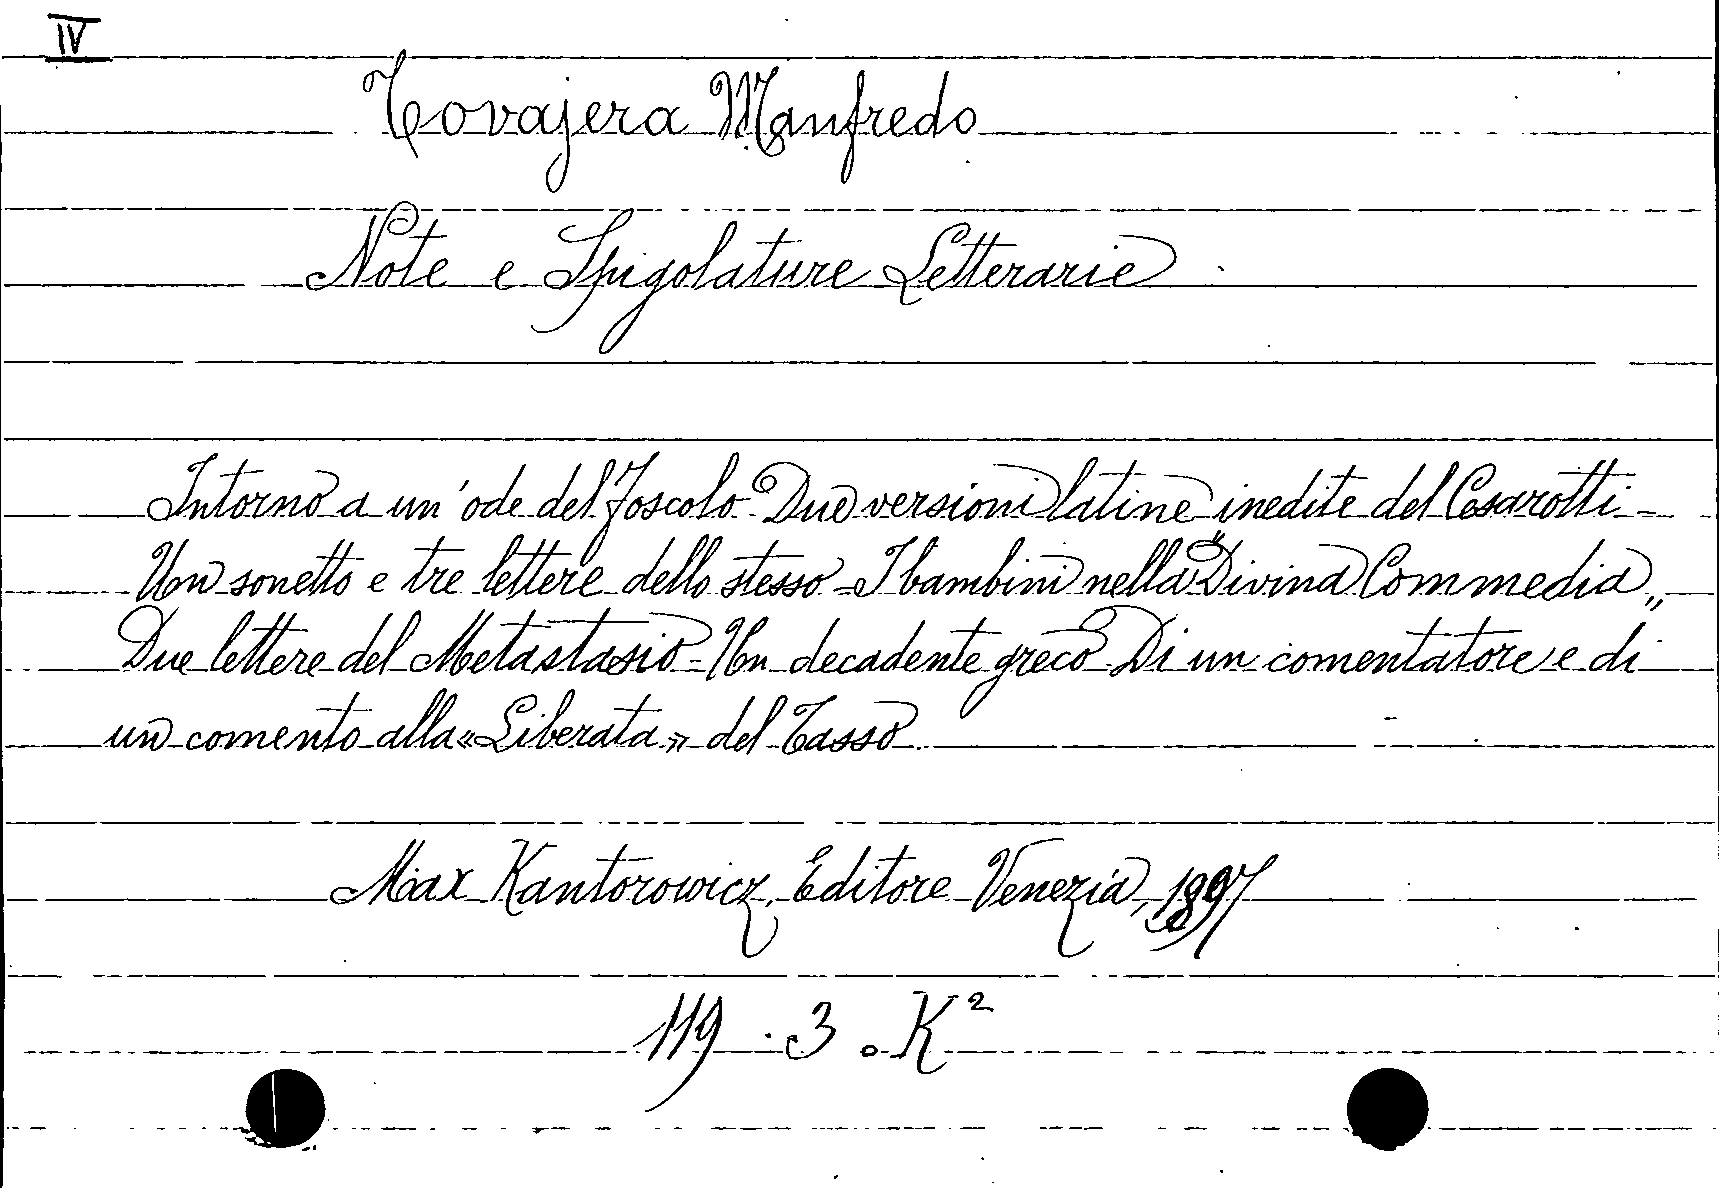 IV
Tovajera Manfredo
Note e Spigolature Letterarie
Intorno a un'ode del Foscolo - Due versioni latine inedite del Cesarotti -
Un sonetto e tre lettere dello stesso - I bambini nella "Divina Commedia„
Due lettere del Metastasio - Un decadente greco - Di un comentatore e di
un comento alla «Liberata» del Tasso
Max Kantorowicz, Editore Venezia, 1897
119 . 3 . K²